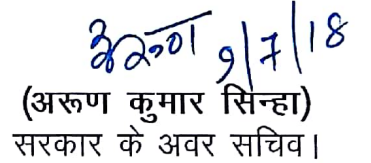 अरुण 9/7/18
(अरूण कुमार सिन्हा)
सरकार के अवर सचिव।